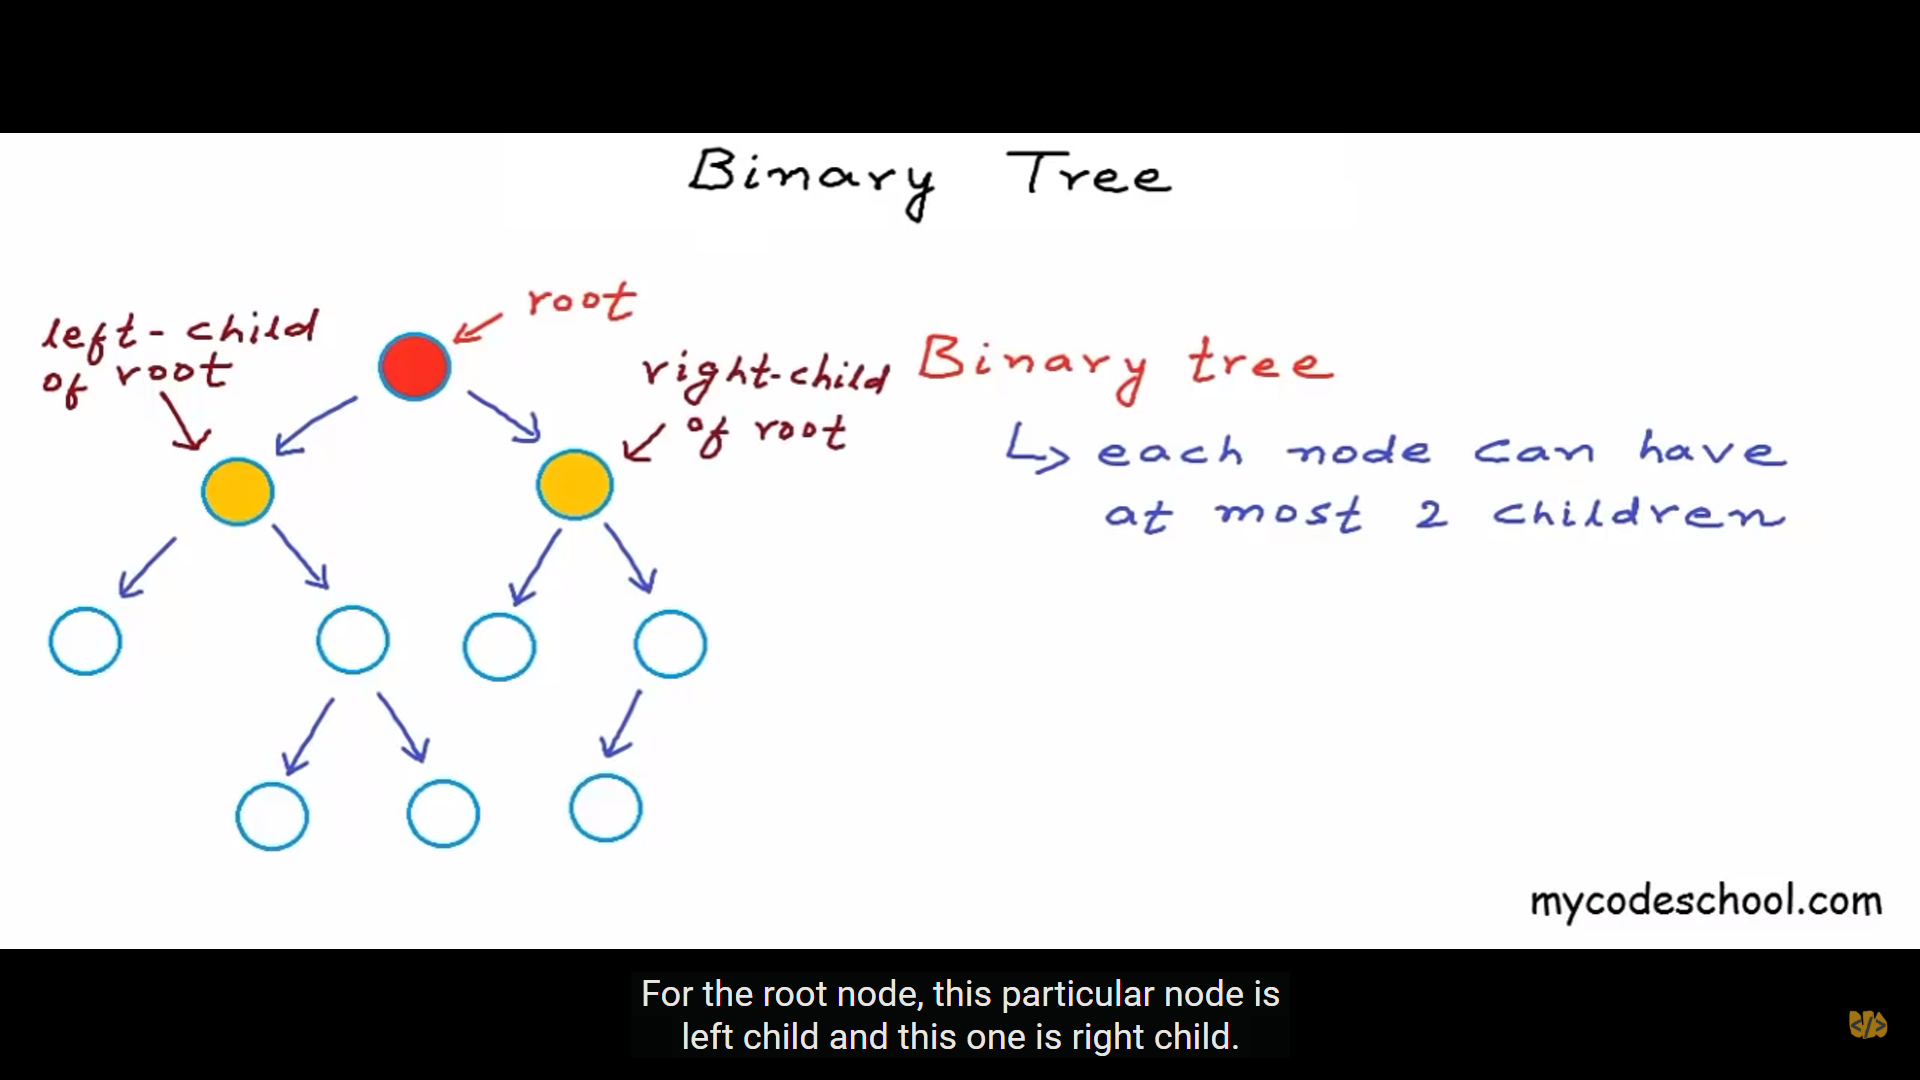 Binary Tree
root
left-child
of root
right-child
of root
Binary tree
↳ each node can have
at most 2 children
mycodeschool.com
For the root node, this particular node is
left child and this one is right child.